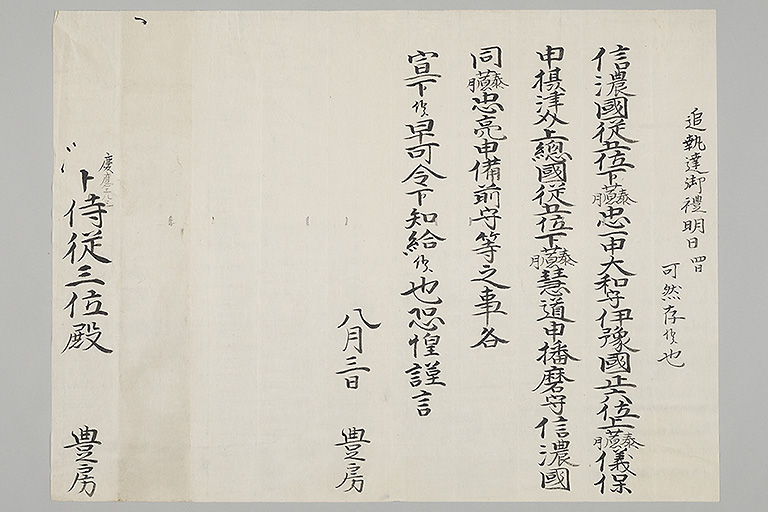 追執達御禮明日 四日
可然存候也
信濃國従五位下藤原忠一申大和守伊豫國正六位上藤原儀保
申摂津介上總國従五位下藤原慧道申播磨守信濃國
同藤原忠亮申備前守等之事各
宣下候早可令下知給候也恐惶謹言
八月三日 豊房
卜侍従三位殿 豊房